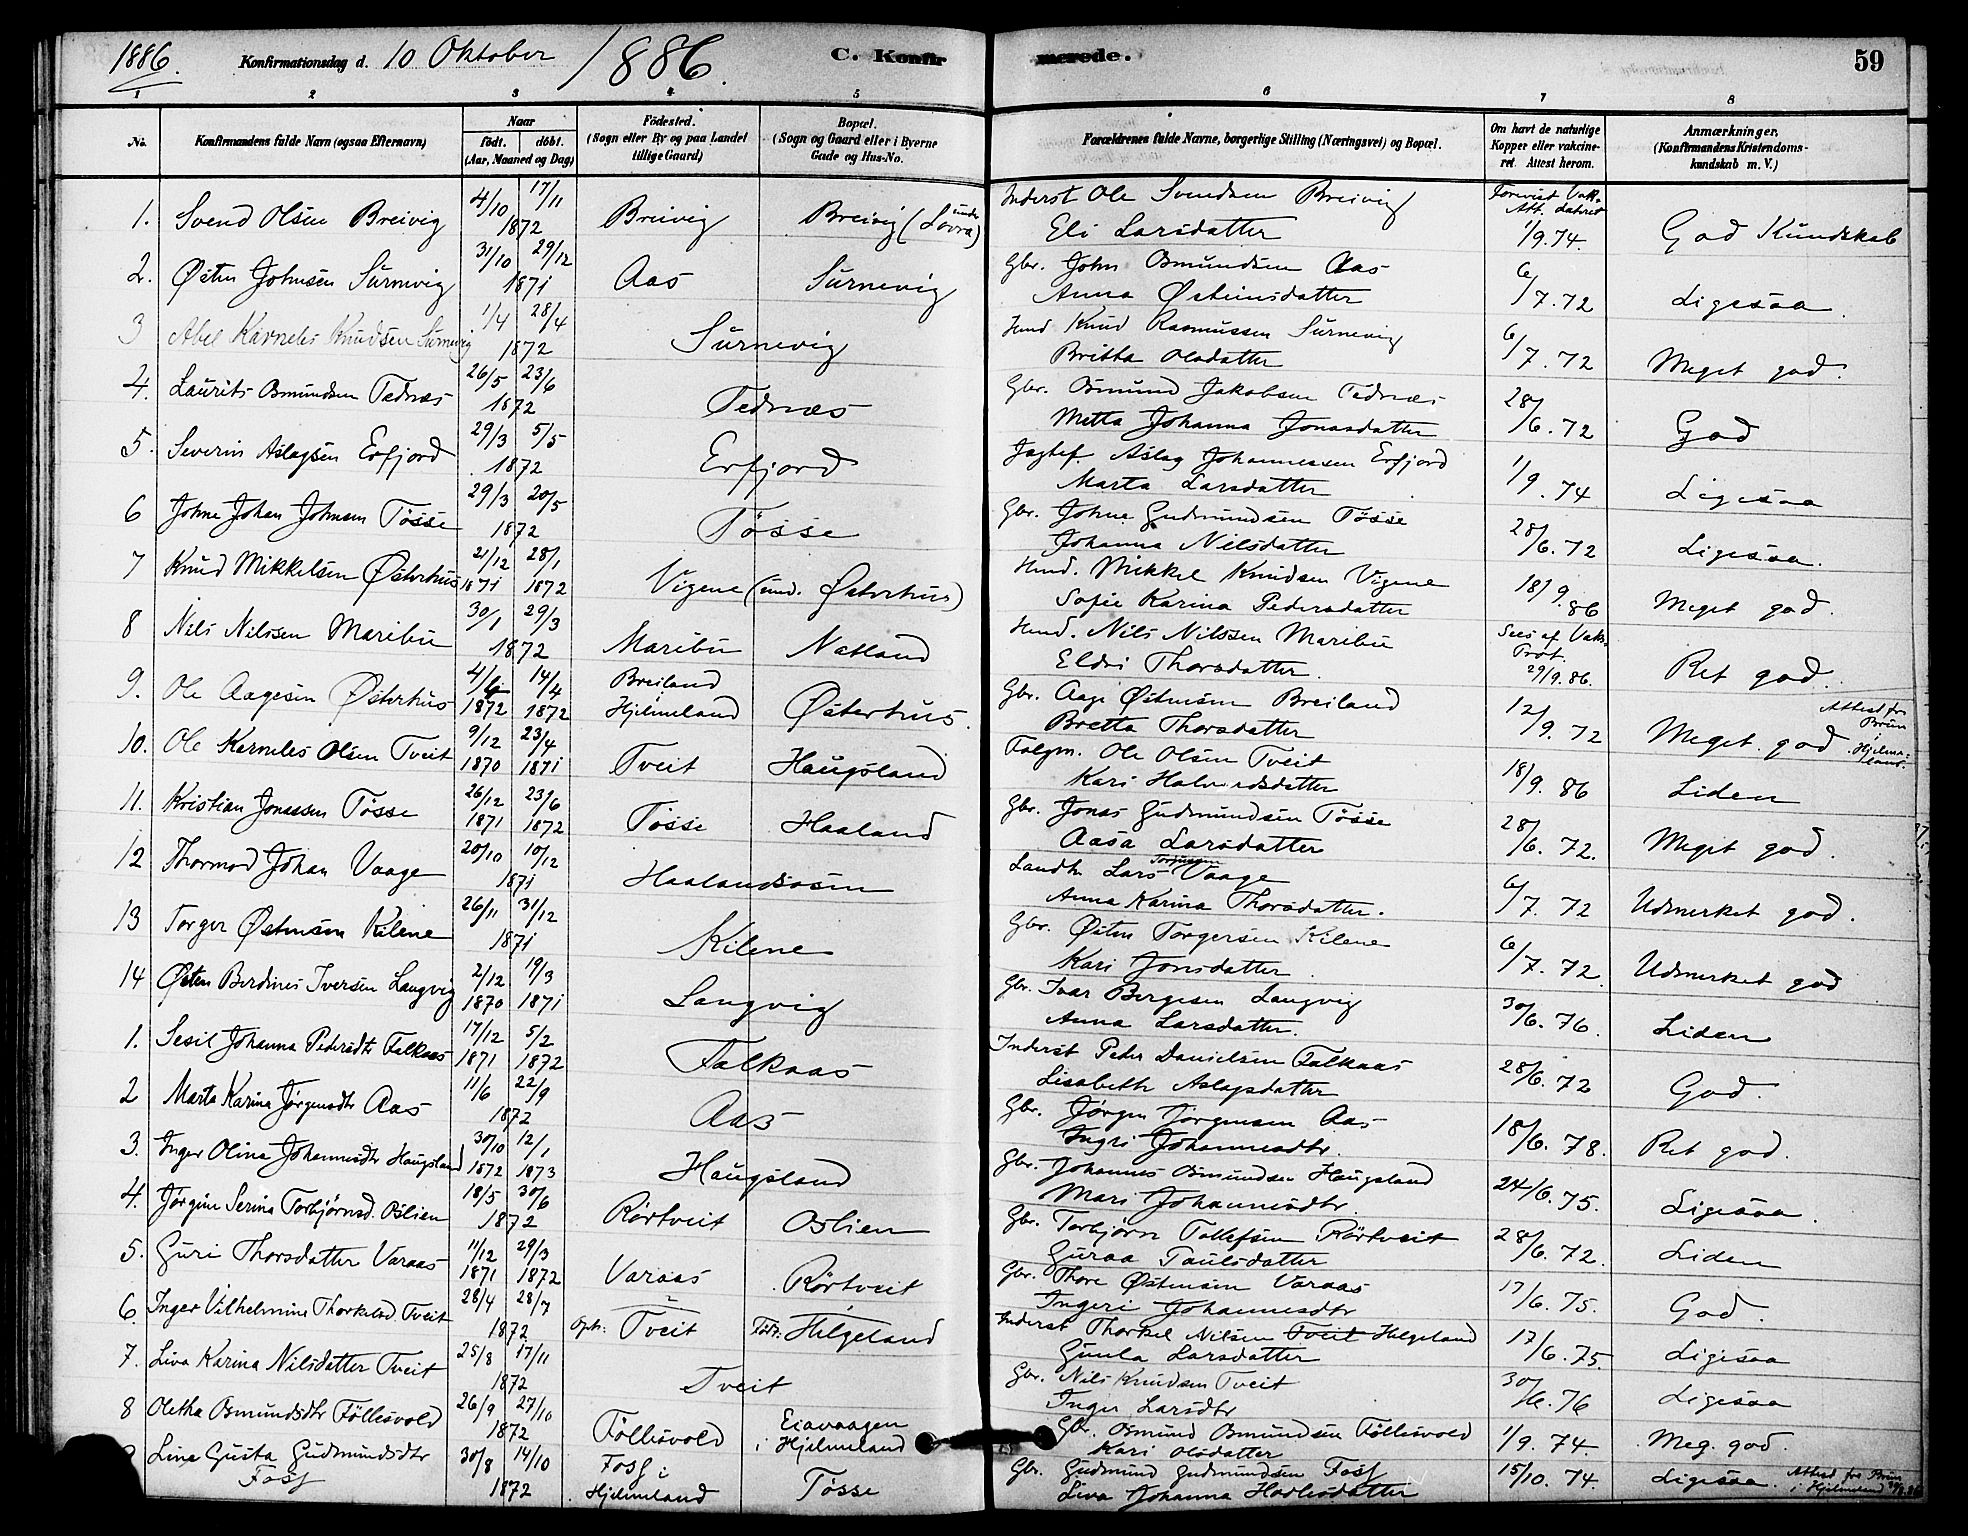 1886. Konfirmationsdag d. 10 Oktober 1886. C. Konfirmerede. 59
1 2 3 4 5 6 7 8
No. Konfirmandens fulde Navn (ogsaa Efternavn) Naar født. døbt. (Aar, Maaned og Dag) Fødested. (Sogn eller By og paa Landet tillige Gaard) Bopæl. (Sogn og Gaard eller i Byerne Gade og Hus-No. Forældrenes fulde Navne, borgerlige Stilling (Næringsvei) og Bopæl. Om havt de naturlige Kopper eller vakcineret. Attest herom. Anmærkninger. (Konfirmandens Kristendomskundskab m. V.)
1. Svend Olsen Breivig 4/10 17/11 1872 Breivig Breivig (under Lovra) Inderst Ole Svendsen Breivig Eli Larsdatter Forevist Vak. Att. dateret 1/9.74. God Kundskab
2. Østen Johnsen Surnevig 31/10 29/12 1871 Aas Surnevig Gbr. John Osmundsen Aas Anna Østensdatter 6/7.72 Ligesaa.
3 Abel Karnelis Knudsen Surnevig 1/4 28/4 1872 Surnevig Husmd Knud Rasmussen Surnevig Britha Olsdatter 6/7.72 Meget god.
4. Laurits Osmundsen Tednæs 26/5 23/6 1872 Tednæs Gbr. Osmund Jakobsen Tednæs Metta Johanna Jonasdatter 28/6.72 God
5. Severin Aslagsen Erfjord 29/3 5/5 1872 Erfjord Jagtef. Aslag Johannessen Erfjord Marta Larsdatter 1/9.74 Ligesaa
6 Johne Johan Johnsen Tøsse 29/3 20/5 1872 Tøsse Gbr. Johne Gudmundsen Tøsse Johanna Nilsdatter 28/6.72 Ligesaa.
7 Knud Mikkelsen Østerhus 21/12 1871 28/1 1872 Vigene (und. Østerhus) Husmd. Mikkel Knudsen Vigene Sofie Karina Pedersdatter 18/9.86 Meget god.
8 Nils Nilssen Maribu 30/1 29/3 1872 Maribu Natland Husmd. Nils Nilssen Maribu Eldri Thorsdatter. Sees af Vak. Prot. 29/9.86. Ret god.
9. Ole Aagesen Østerhus 4/4 1872 14/4 1872 Breiland Hjelmeland Østerhus. Gbr. Aage Østensen Breiland Bretta Thorsdatter 12/9.72 Meget god Attest fra Bruun i Hjelmeland.
10. Ole Karneles Olsen Tveit 9/12 1870 23/4 1871 Tveit Haugsland Følgm. Ole Olsen Tveit Kari Halvordsdatter 18/9.86 Liden
11. Kristian Jonassen Tøsse 26/12 1871 23/6 1872 Tøsse Haaland Gbr. Jonas Gudmundsen Tøsse Aasa Larsdatter 28/6.72. Meget god.
12 Thormod Johan Vaage 20/10 10/12 1871 Haalandsosen Landh. Lars Torjussen Vaage Anna Karina Thorsdatter. 6/7.72 Udmerket god.
13 Torger Østensen Kilene 26/11 31/12 1871 Kilene Gbr. Østen Torgersen Kilene Kari Jonsdatter. 6/7.72. Udmerket god
14 Østen Berdines Iversen Langvig 2/12 1870 19/3 1871 Langvig Gbr. Ivar Børgesen Langvig Anna Larsdatter. 30/6.76. Liden
1. Sesil Johanna Pedersdtr Falkaas 17/12 1871 5/2 1872 Falkaas Inderst Peder Danielsen Falkaas Lisabeth Aslagsdatter 28/6.72 God.
2 Marta Karina Jørgensdtr Aas 11/6 22/9 1872 Aas Gbr. Jørgen Jørgensen Aas Ingri Johannesdtr. 18/6.78. Ret god.
3. Inger Olina Johannesdtr Haugsland 30/10 1872 12/1 1873 Haugsland Gbr. Johannes Osmundsen Haugsland Mari Johannesdtr. 24/6.75. Ligesaa.
4. Jørgine Serina Torbjørnsd. Oslien 18/5 30/6 1872 Rørtveit Oslien Gbr. Torbjørn Tollefsen Rørtveit Guraa Paulsdatter 28/6.72. Liden
5. Guri Thorsdatter Varaas 11/12 1871 29/3 1872 Varaas Rørtveit Gbr. Thore Østensen Varaas Ingeri Johannesdtr 17/6.75. God.
6. Inger Vilhelmine Thorkelsd Tveit 28/4 28/7 1872 Tveit Helgeland Inderst Thorkel Nilsen Tveit Helgeland Gunla Larsdatter 17/6.75. Ligesaa
7. Liva Karina Nilsdatter Tveit 25/8 17/11 1872 Tveit Gbr. Nils Knudsen Tveit Inger Larsdtr 30/6.76 Ligesaa
8 Oletha Osmundsdtr Føllesvold 26/9 27/10 1872 Føllesvold Eiavaagen i Hjelmeland Gbr. Osmund Osmundsen Føllesvold Kari Olsdatter 1/9.74. Meg. god.
Line Gusta Gudmundsdtr Foss 30/8 14/10 1872 Foss i Hjelmeland Tøsse Gbr. Gudmund Gudmundsen Foss Liva Johanna Hadlesdatter 15/10.74. Ligesaa. Attest fra Bruun i Hjelmeland